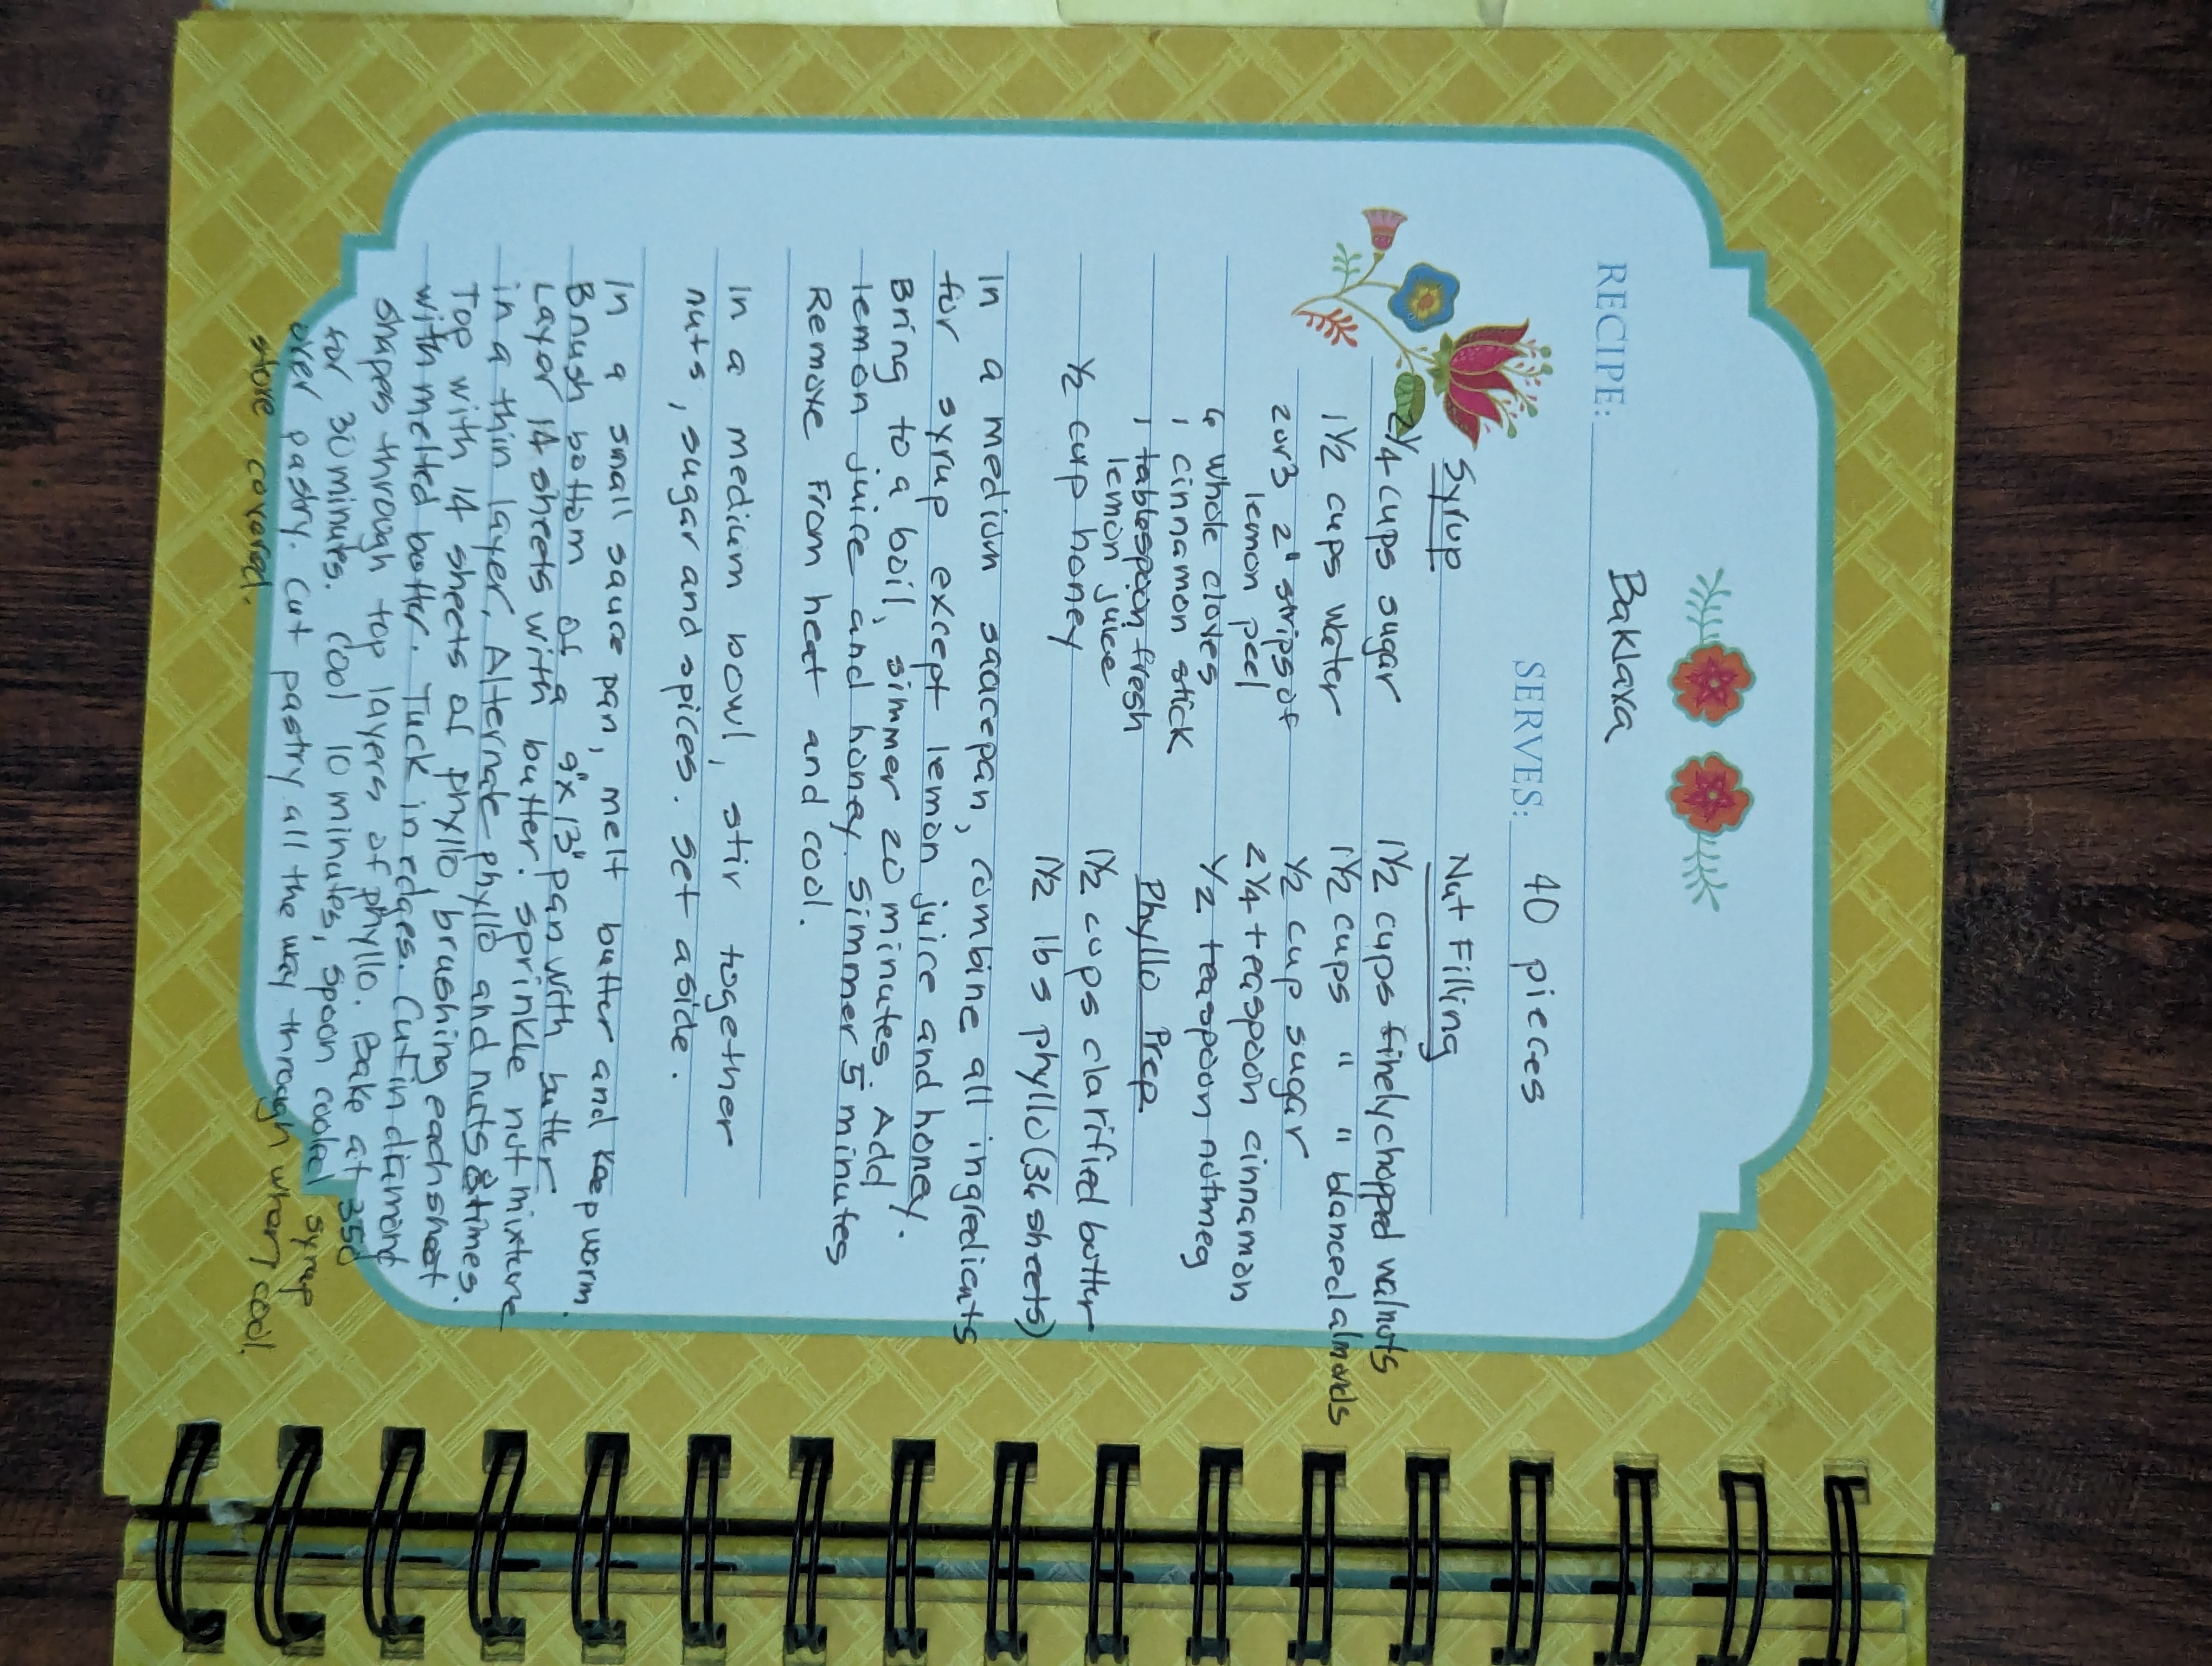 RECIPE: Baklava
SERVES: 40 pieces
Syrup
2 1/4 cups sugar
1 1/2 cups water
2 or 3 2" strips of
lemon peel
6 whole cloves
1 cinnamon stick
1 tablespoon fresh
lemon juice
1/2 cup honey
Nut Filling
1 1/2 cups finely chopped walnuts
1 1/2 cups " " blanced almonds
1/2 cup sugar
2 1/4 teaspoon cinnamon
1/2 teaspoon nutmeg
Phyllo Prep
1 1/2 cups clarified butter
1 1/2 lbs phyllo (36 sheets)
In a medium saucepan, combine all ingredients
for syrup except lemon juice and honey.
Bring to a boil, simmer 20 minutes. Add
lemon juice and honey. simmer 5 minutes
Remove From heat and cool.
In a medium bowl, stir together
nuts, sugar and spices. set aside.
In a small sauce pan, melt butter and keep warm.
Brush bottom of a 9"x13" pan with butter
Layer 14 sheets with butter. sprinkle nut mixture
in a thin layer. Alternate phyllo and nuts 8 times.
Top with 14 sheets of phyllo, brushing each sheet
with melted butter. Tuck in edges. Cut in diamond
shapes through top layers of phyllo. Bake at 350
for 30 minutes. Cool 10 minutes, spoon cooled syrup
over pastry. Cut pastry all the way through when cool.
store covered.